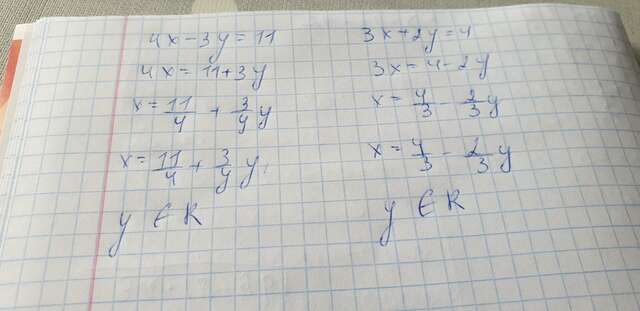 4x-3y=11
4x=11+3y
x=11/4+3/4y
x=11/4+3/4y
y∈R
3x+2y=4
3x=4-2y
x=4/3-2/3y
x=4/3-2/3y
y∈R